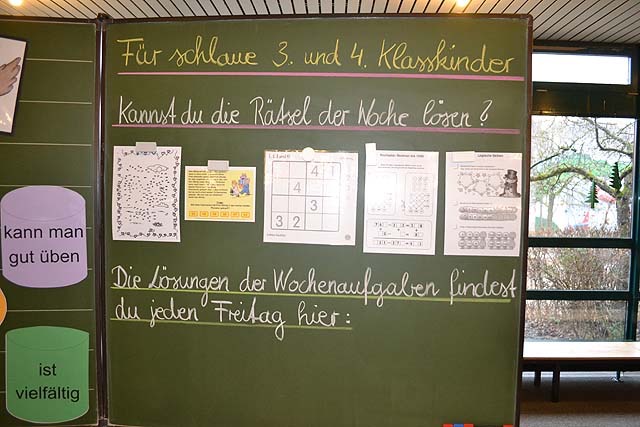 Für schlaue 3. und 4. Klasskinder
Kannst du die Rätsel der Woche lösen?
4 1
4
3
3 2
kann man
gut üben
Die Lösungen der Wochenaufgaben findest
du jeden Freitag hier:
ist
vielfältig